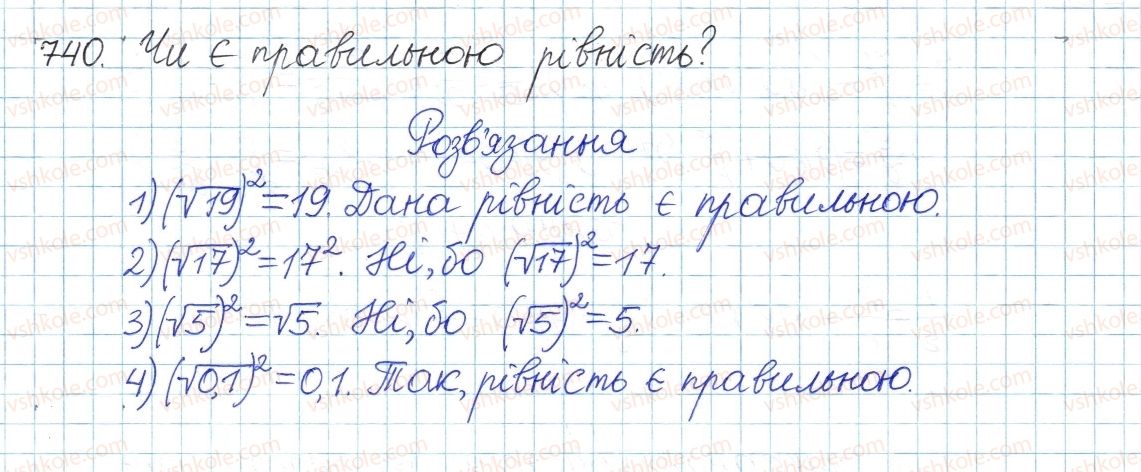 740. Чи є правильною рівність?
Розв'язання
1) (√19)² = 19. Дана рівність є правильною.
2) (√17)² = 17². Ні, бо (√17)² = 17.
3) (√5)² = √5. Ні, бо (√5)² = 5.
4) (√0,1)² = 0,1. Так, рівність є правильною.